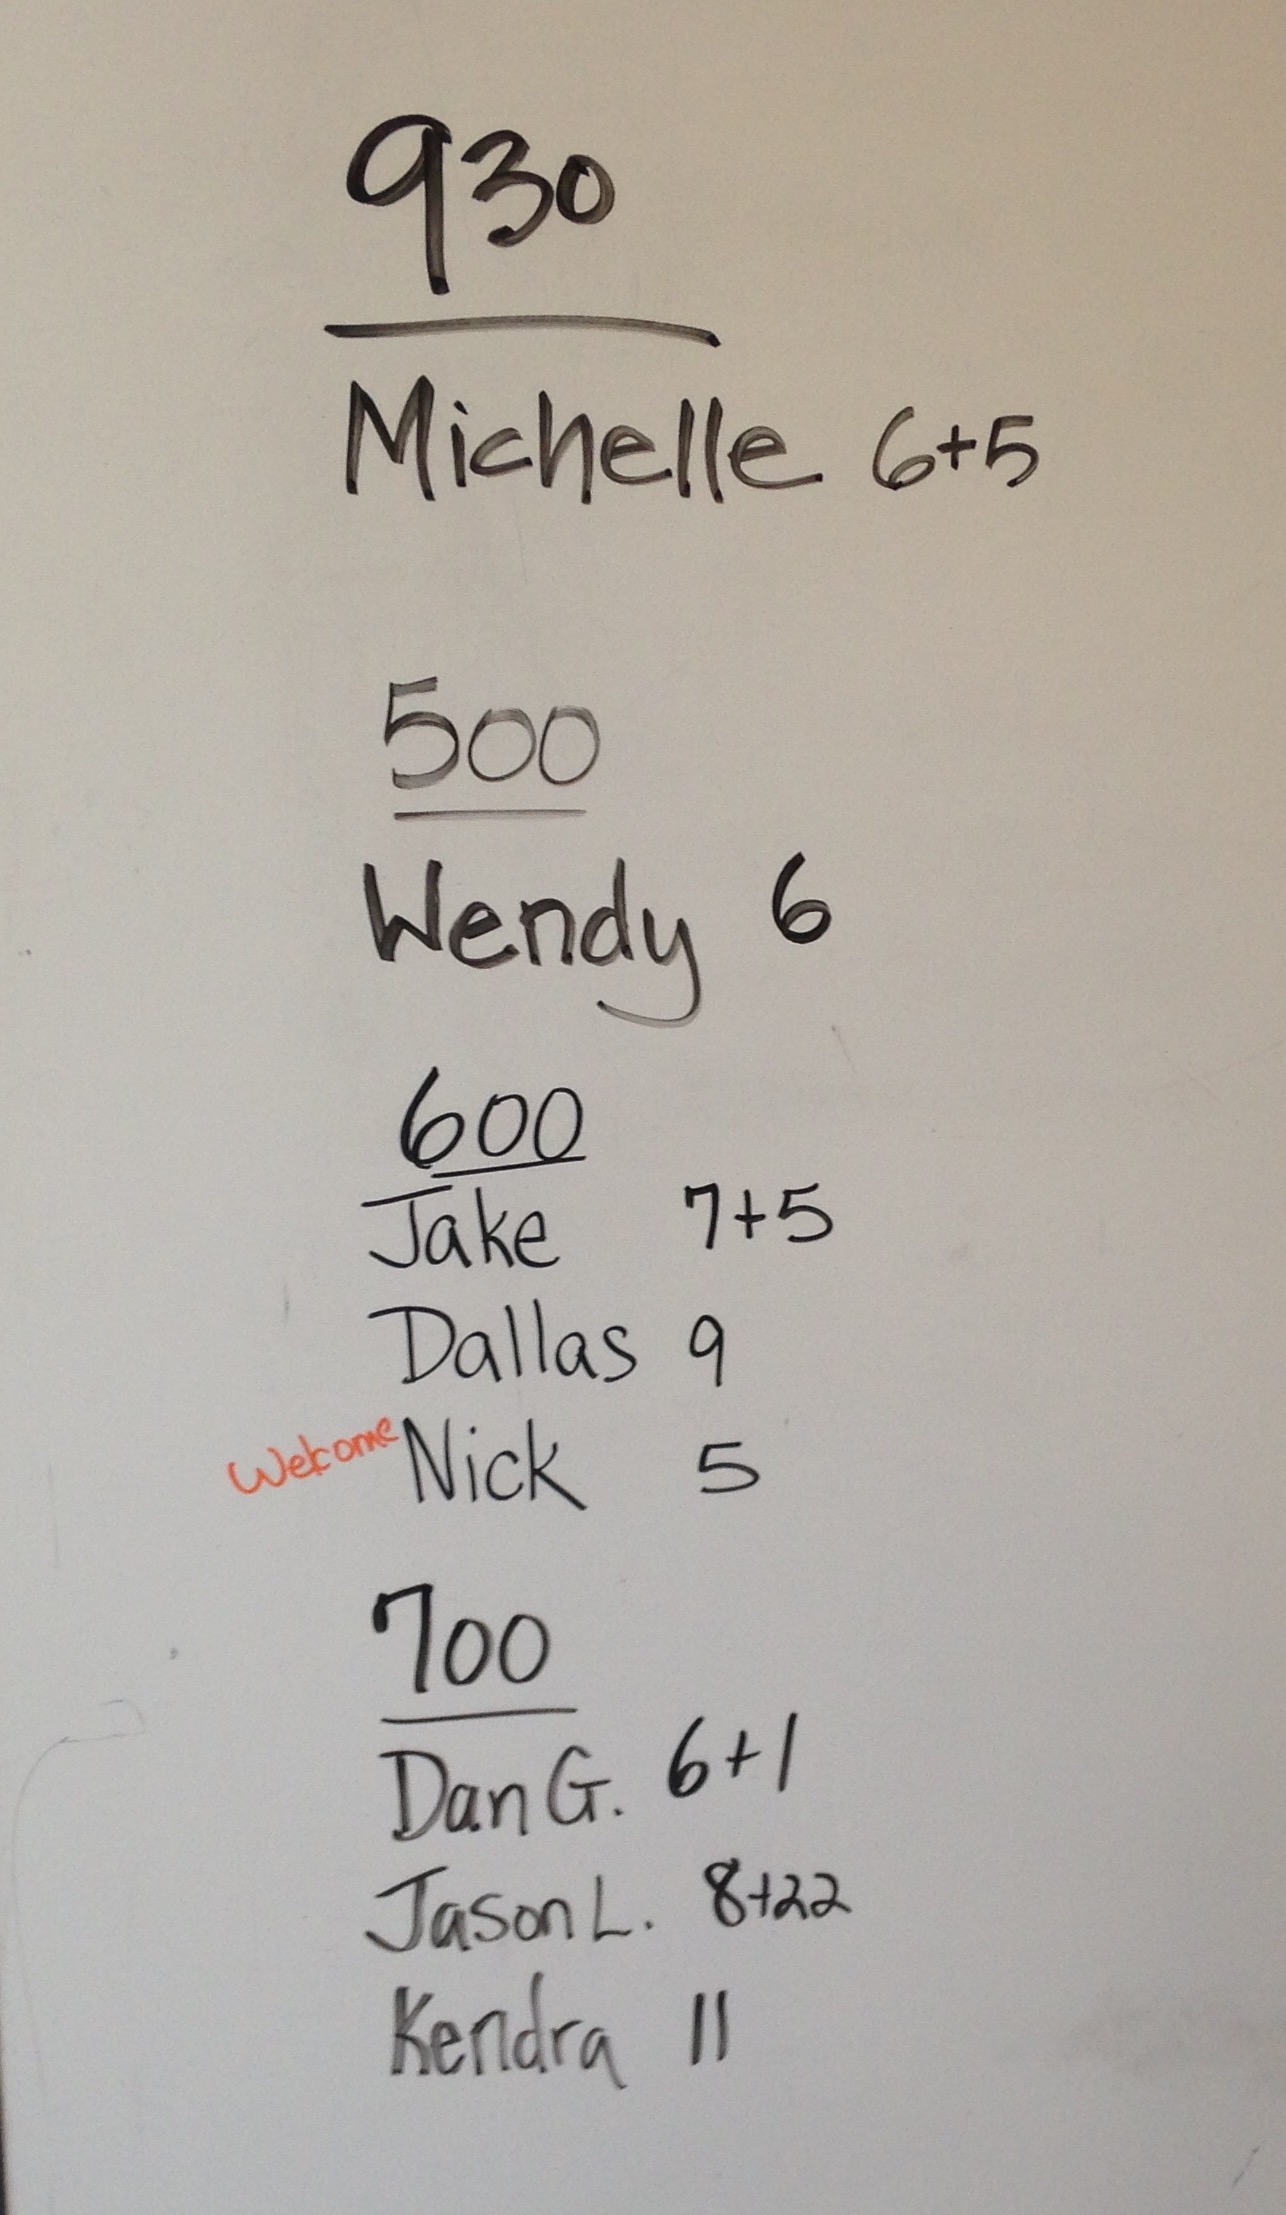 930
Michelle 6+5
500
Wendy 6
600
Jake 7+5
Dallas 9
Welcome Nick 5
700
Dan G. 6+1
Jason L. 8+22
Kendra 11